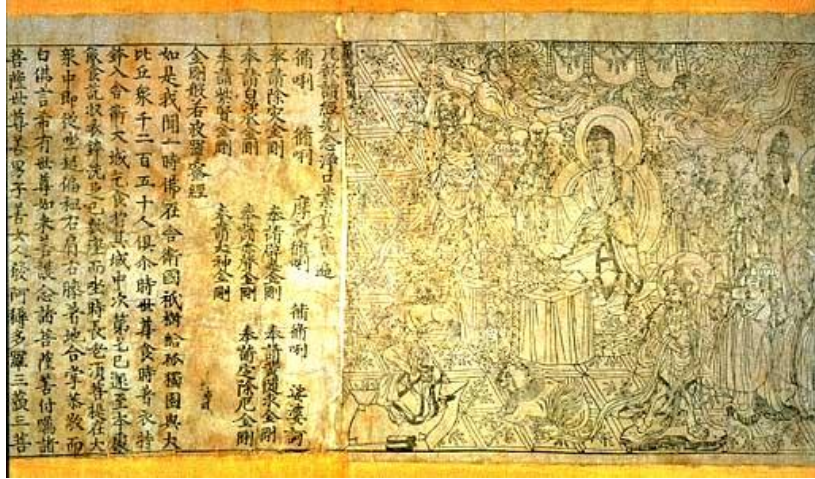 凡欲讀經先念淨口業真言一遍
脩唎 脩唎 摩訶脩唎 脩脩唎 娑婆訶
奉請除灾金剛 奉請辟毒金剛 奉請黃隨求金剛
奉請白淨水金剛 奉請赤聲金剛 奉請定除厄金剛
奉請紫賢金剛 奉請大神金剛
金剛般若波羅蜜經
如是我聞一時佛在舍衛國祇樹給孤獨園與大
比丘衆千二百五十人俱尒時世尊食時著衣持
鉢入舍衛大城乞食於其城中次第乞已還至本處
飯食訖收衣鉢洗足已敷座而坐時長老湏菩提在大
衆中即從座起偏袒右肩右膝著地合掌恭敬而
白佛言希有世尊如來善護念諸菩薩善付囑諸
菩薩世尊善男子善女人發阿耨多羅三藐三菩